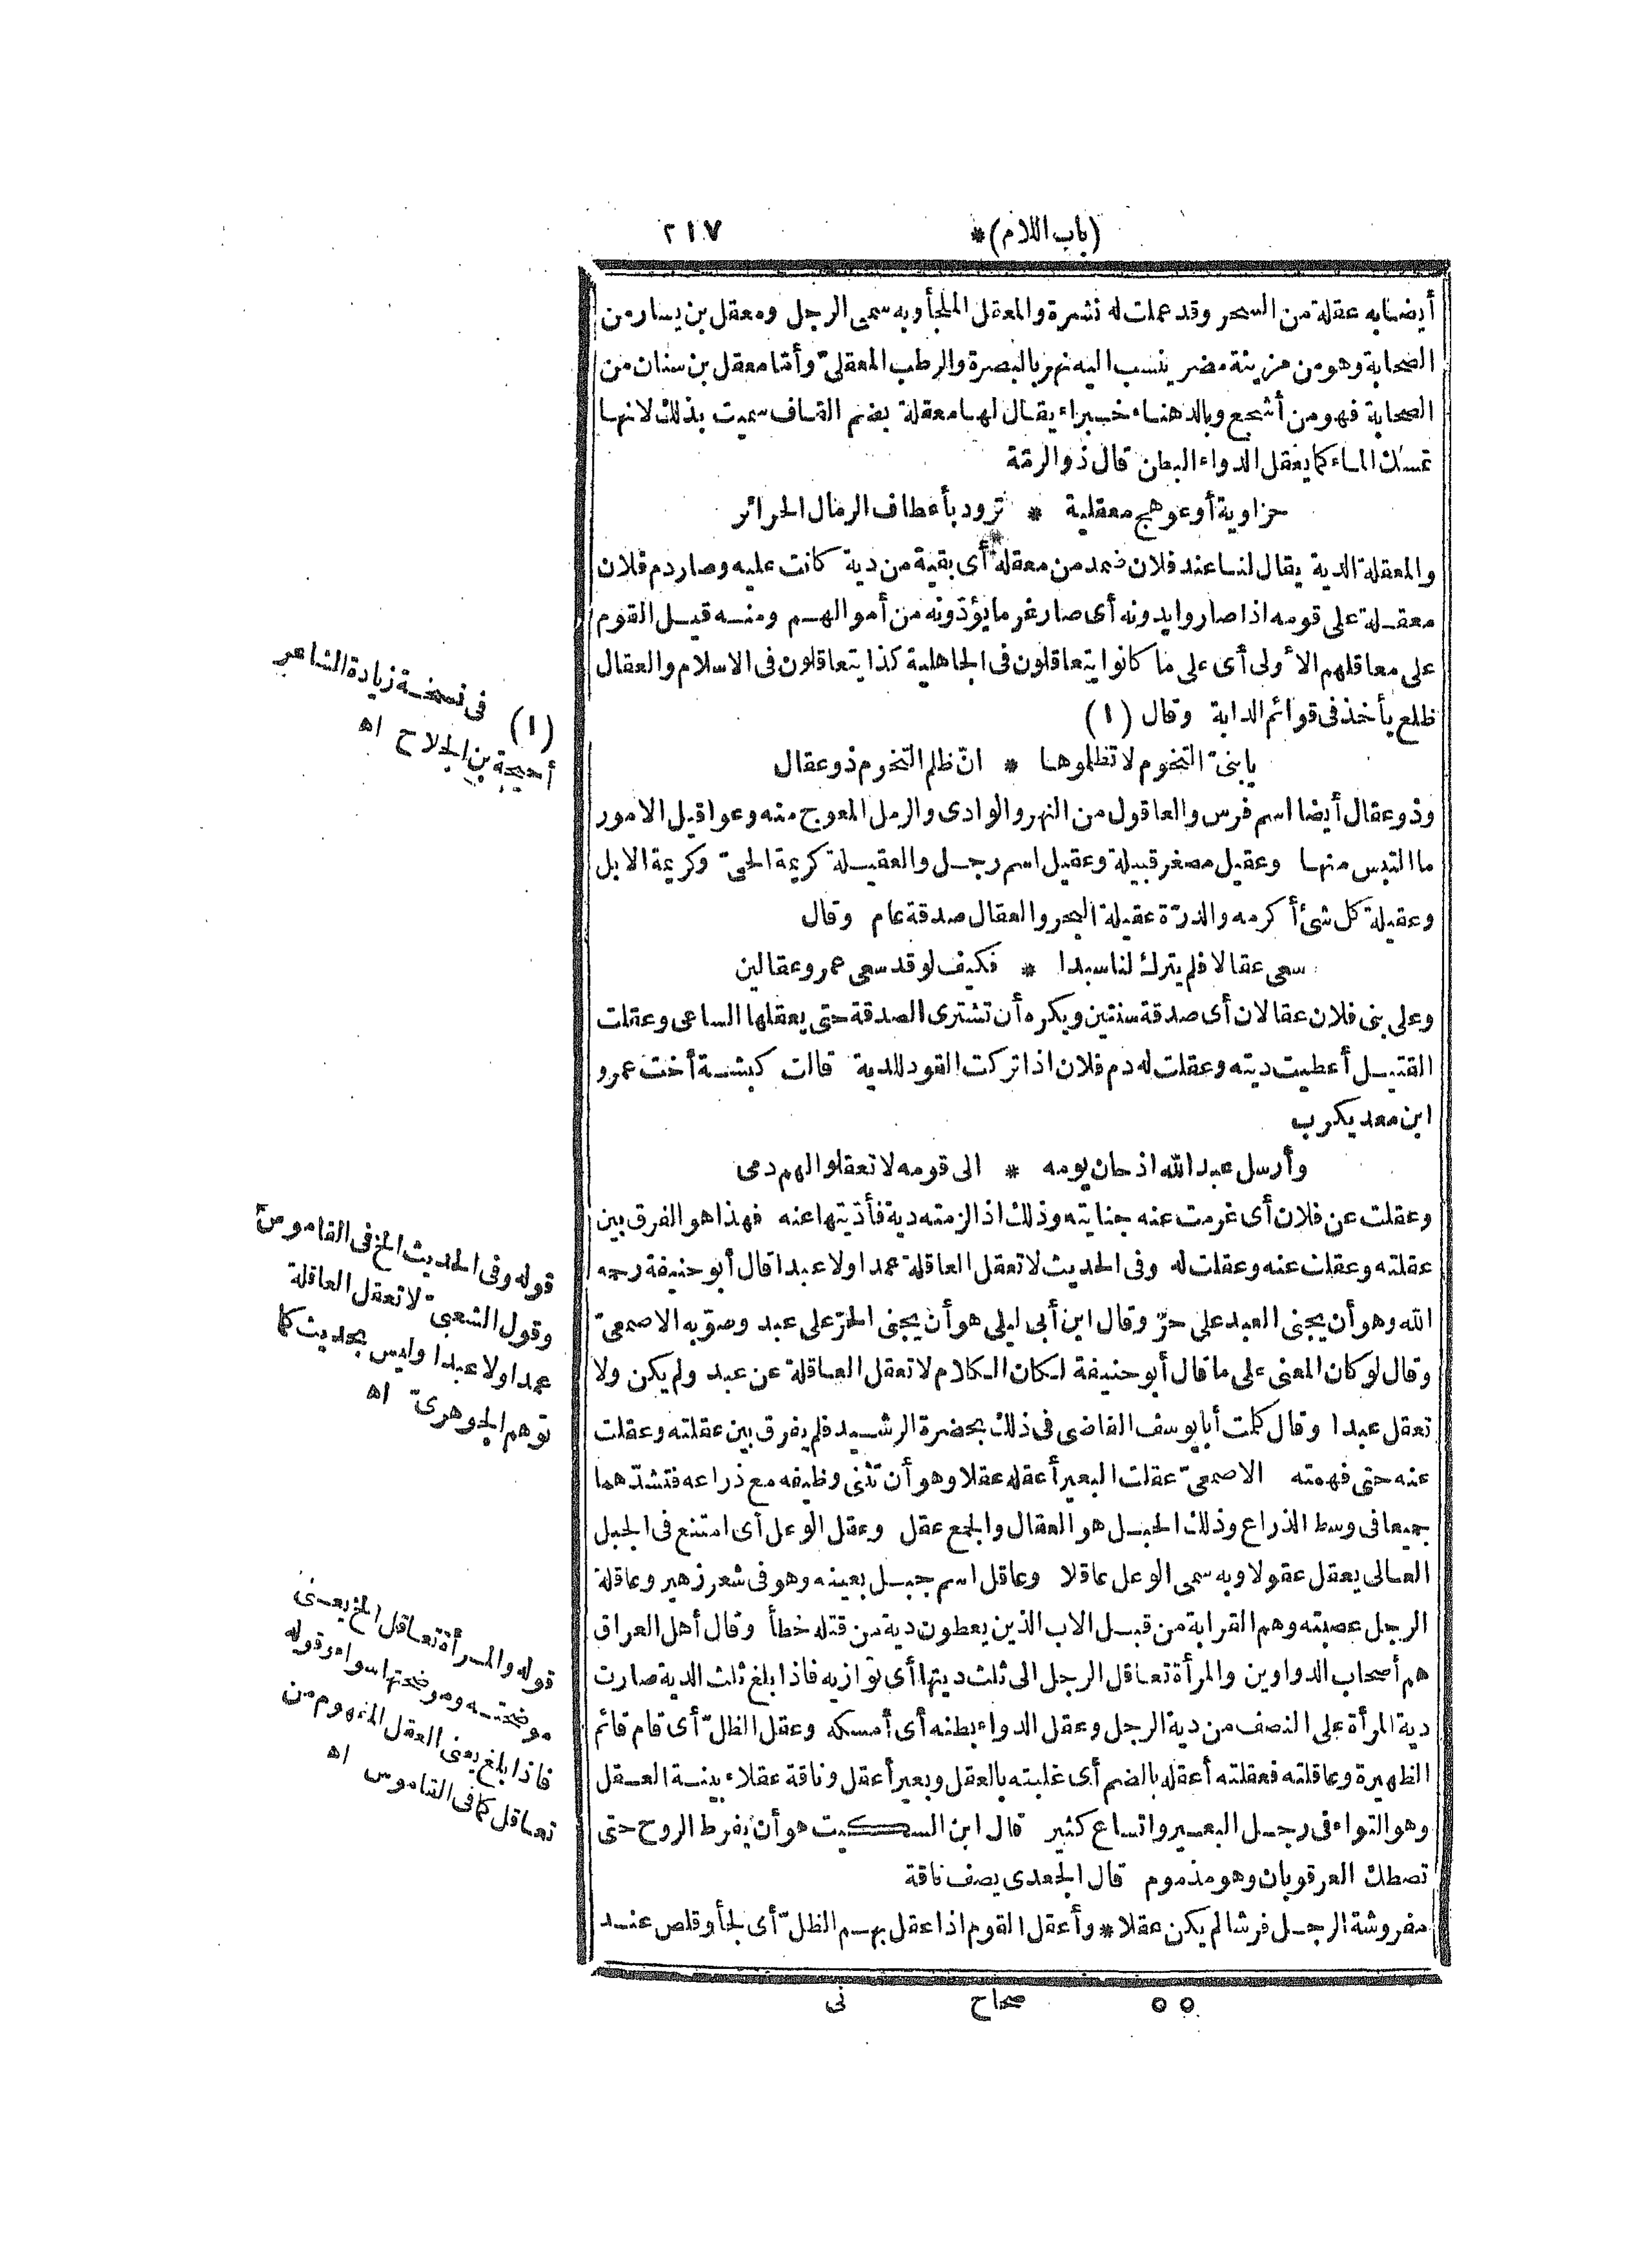 (باب اللام) * ٢١٧
أيضا به عقلة من السحر وقد عملت له نشرة والمعقل الملجأ وبه سمى الرجل ومعقل بن يسار من
الصحابة وهو من مزينة مضر ينسب اليه نهر بالبصرة والرطب المعقلىّ وأمّا معقل بن سنان من
الصحابة فهو من أشجع وبالدهناء خبراء يقال لها معقلة بضم القاف سميت بذلك لانها
تمسك الماء كما يعقل الدواء البطن قال ذو الرمّة
حزاوية أو عوهج معقلية * ترود بأعطاف الرمال الحرائر
والمعقلة الدية يقال لنا عند فلان ضمد من معقلة أى بقية من دية كانت عليه وصار دم فلان
معقلة على قومه اذا صاروا يدونه أى صار غرما يؤدّونه من أموالهم ومنه قيل القوم
على معاقلهم الأولى أى على ما كانوا يتعاقلون فى الجاهلية كذا يتعاقلون فى الاسلام والعقال
ظلع يأخذ فى قوائم الدابة وقال (١)
يا بنىّ التخوم لا تظلموها * انّ ظلم التخوم ذو عقال
وذو عقال أيضا اسم فرس والعاقول من النهر والوادى والرمل المعوج منه وعواقيل الامور
ما التبس منها وعقيل مصغر قبيلة وعقيل اسم رجل والعقيلة كريمة الحىّ وكريمة الابل
وعقيلة كل شئ أكرمه والدرّة عقيلة البحر والعقال صدقة عام وقال
سعى عقالا فلم يترك لنا سبدا * فكيف لو قد سعى عمرو عقالين
وعلى بنى فلان عقالان أى صدقة سنتين ويكره أن تشترى الصدقة حتى يعقلها الساعى وعقلت
القتيل أعطيت ديته وعقلت له دم فلان اذا تركت القود للدية قالت كبشة أخت عمرو
ابن معديكرب
وأرسل عبد الله اذ حان يومه * الى قومه لا تعقلوا لهم دمى
وعقلت عن فلان أى غرمت عنه جنايته وذلك اذا لزمته دية فأدّيتها عنه فهذا هو الفرق بين
عقلته وعقلت عنه وعقلت له وفى الحديث لا تعقل العاقلة عمدا ولا عبدا قال أبو حنيفة رحمه
الله وهو أن يجنى العبد على حرّ وقال ابن أبى ليلى هو أن يجنى الحرّ على عبد وصوّبه الاصمعىّ
وقال لو كان المعنى على ما قال أبو حنيفة لكان الكلام لا تعقل العاقلة عن عبد ولم يكن ولا
تعقل عبدا وقال كلمت أبا يوسف القاضى فى ذلك بحضرة الرشيد فلم يفرق بين عقلته وعقلت
عنه حتى فهمته الاصمعىّ عقلت البعير أعقله عقلا وهو أن تثنى وظيفه مع ذراعه فتشدّهما
جميعا فى وسط الذراع وذلك الحبل هو العقال والجمع عقل وعقل الوعل أى امتنع فى الجبل
العالى يعقل عقولا وبه سمى الوعل عاقلا وعاقل اسم جبل بعينه وهو فى شعر زهير وعاقلة
الرجل عصبته وهم القرابة من قبل الاب الذين يعطون دية من قتله خطأ وقال أهل العراق
هم أصحاب الدواوين والمرأة تعاقل الرجل الى ثلث ديتها أى توازيه فاذا بلغ ثلث الدية صارت
دية المرأة على النصف من دية الرجل وعقل الدواء بطنه أى أمسكه وعقل الظلّ أى قام قائم
الظهيرة وعاقلته فعقلته أعقله بالضم أى غلبته بالعقل وبعير أعقل وناقة عقلاء بينة العقل
وهو التواء فى رجل البعير واتساع كثير قال ابن السكيت هو أن يفرط الروح حتى
تصطك العرقوبان وهو مذموم قال الجعدى يصف ناقة
مفروشة الرجل فرشا لم يكن عقلا * وأعقل القوم اذا عقل بهم الظلّ أى لجأ وقلص عند
٥٥ صحاح نى
(١) فى نسخة زيادة الشاعر
أحيحة بن الجلاح اه
قوله وفى الحديث الخ فى القاموس
وقول الشعبىّ لا تعقل العاقلة
عمدا ولا عبدا وليس بحديث كما
توهم الجوهرىّ اه
قوله والمرأة تعاقل الخ يعنى
موضحته وموضحتها سواء وقوله
فاذا بلغ يعنى العقل المفهوم من
تعاقل كما فى القاموس اه